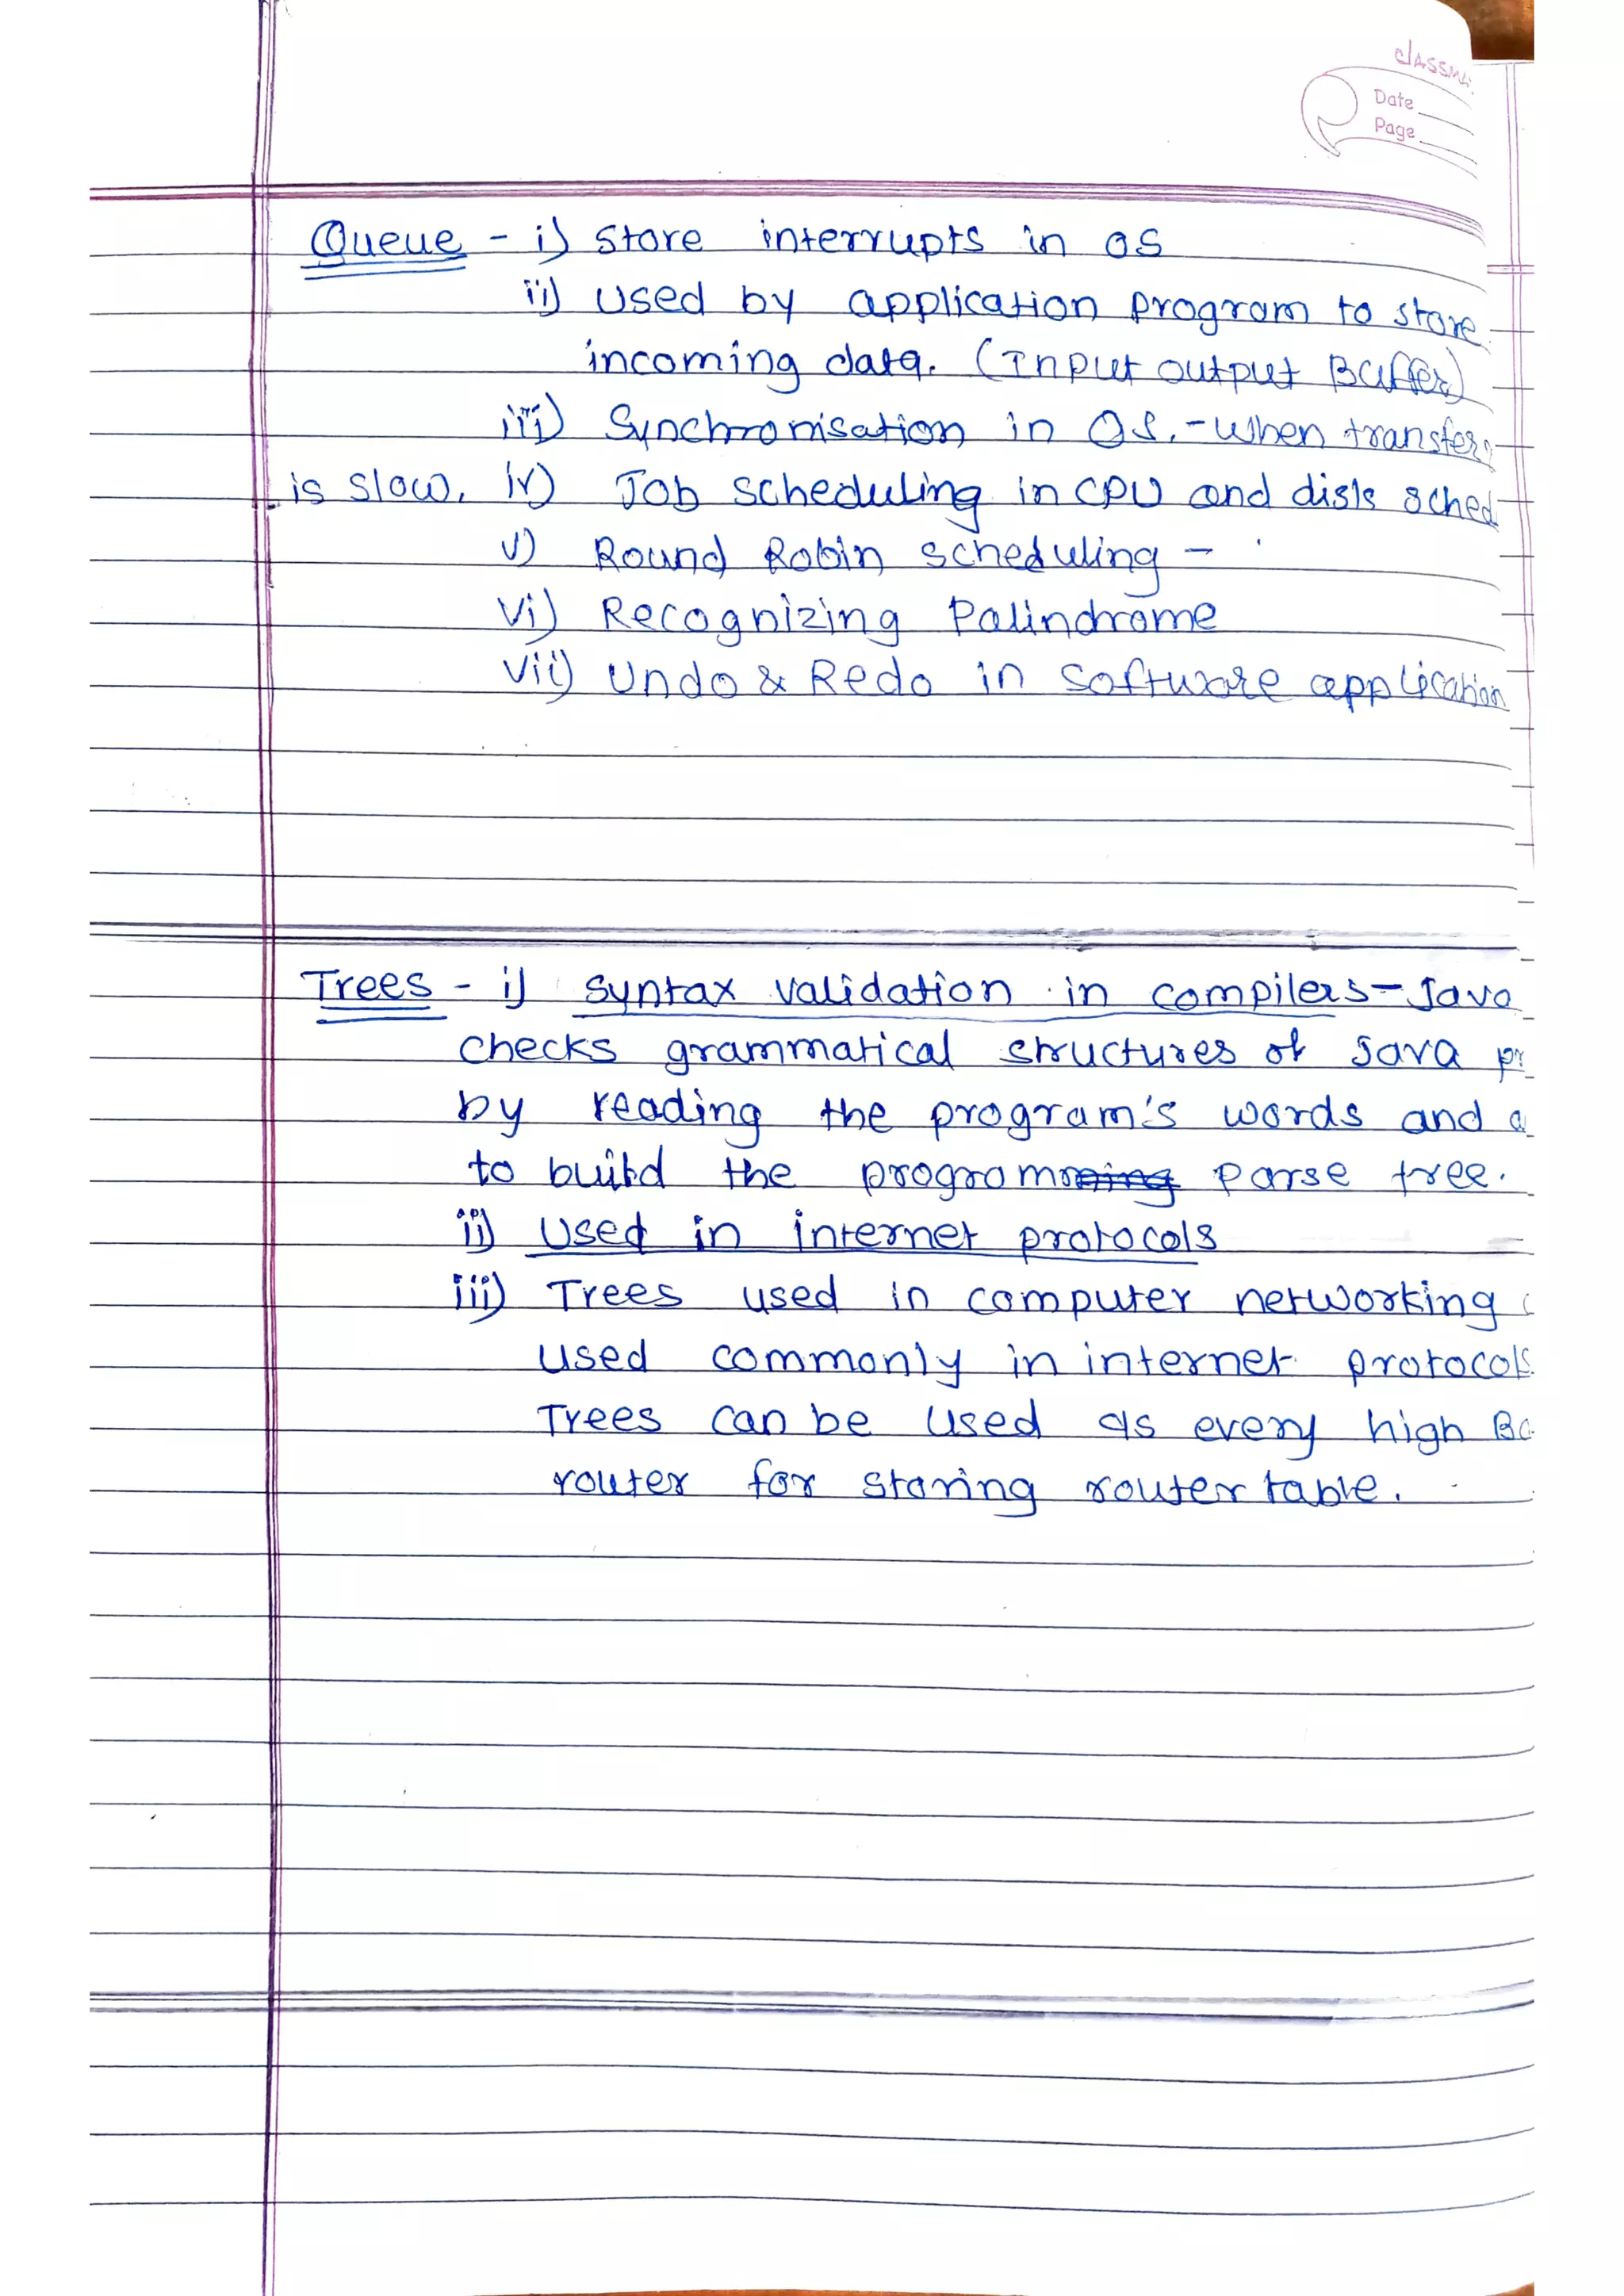 Date
Page
Queue - i) Store interrupts in OS
ii) Used by application program to store
incoming data. (Input output Buffer)
iii) Synchronisation in OS. - When transfer
is slow. iv) Job scheduling in CPU and disk sched
v) Round Robin scheduling -
vi) Recognizing Palindrome
vii) Undo & Redo in software application
Trees - i) Syntax validation in compilers - Java
checks grammatical structures of Java
by reading the program's words and
to build the program parse tree.
ii) Used in internet protocols
iii) Trees used in computer networking
used commonly in internet protocols.
Trees can be used as every high
router for storing router table.